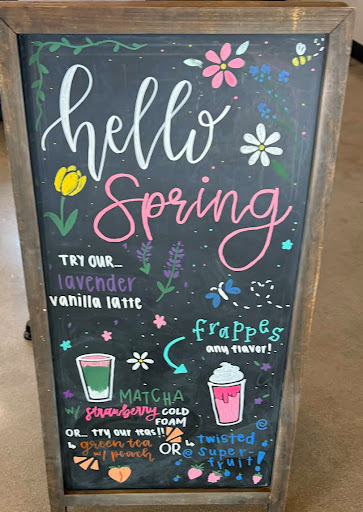 hello
Spring
TRY OUR...
lavender
vanilla latte
frappes
any flavor!
MATCHA
w/ strawberry COLD
FOAM
OR... try our teas!!
green tea
w/ peach
OR
twisted
super-
fruit!